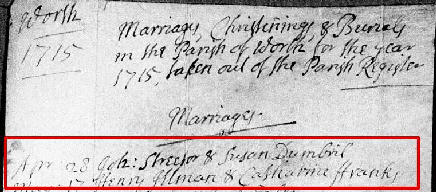 Worth
1715
Marriages, Christenings & Burials
in the Parish of Worth, for the year
1715, taken out of the Parish Register
Marriages.
Apr 28 Streetor & Susan Dumbril
17 Henry Illman & Catharine ffranks